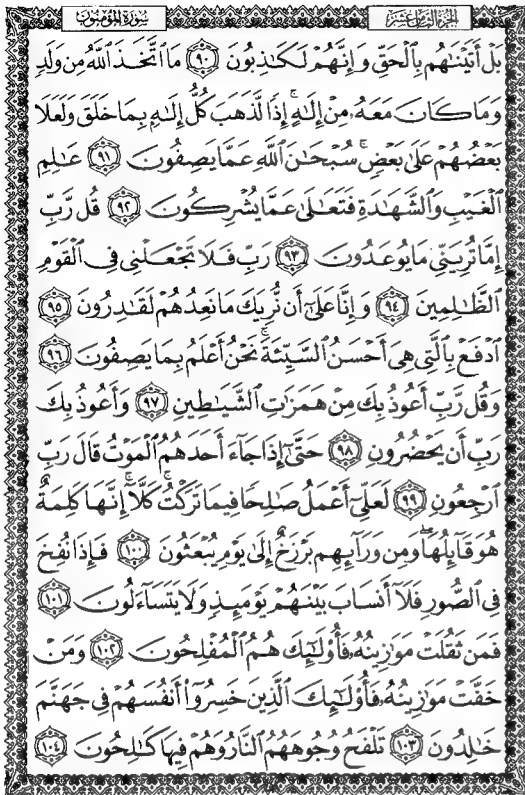 سورة المؤمنون
الجزء الثامن عشر
بَلْ أَتَيْنَٰهُم بِٱلْحَقِّ وَإِنَّهُمْ لَكَٰذِبُونَ ۝٩٠ مَا ٱتَّخَذَ ٱللَّهُ مِن وَلَدٍ
وَمَا كَانَ مَعَهُۥ مِنْ إِلَٰهٍ ۚ إِذًا لَّذَهَبَ كُلُّ إِلَٰهٍۭ بِمَا خَلَقَ وَلَعَلَا
بَعْضُهُمْ عَلَىٰ بَعْضٍ ۚ سُبْحَٰنَ ٱللَّهِ عَمَّا يَصِفُونَ ۝٩١ عَٰلِمِ
ٱلْغَيْبِ وَٱلشَّهَٰدَةِ فَتَعَٰلَىٰ عَمَّا يُشْرِكُونَ ۝٩٢ قُل رَّبِّ
إِمَّا تُرِيَنِّى مَا يُوعَدُونَ ۝٩٣ رَبِّ فَلَا تَجْعَلْنِى فِى ٱلْقَوْمِ
ٱلظَّٰلِمِينَ ۝٩٤ وَإِنَّا عَلَىٰٓ أَن نُّرِيَكَ مَا نَعِدُهُمْ لَقَٰدِرُونَ ۝٩٥
ٱدْفَعْ بِٱلَّتِى هِىَ أَحْسَنُ ٱلسَّيِّئَةَ ۚ نَحْنُ أَعْلَمُ بِمَا يَصِفُونَ ۝٩٦
وَقُل رَّبِّ أَعُوذُ بِكَ مِنْ هَمَزَٰتِ ٱلشَّيَٰطِينِ ۝٩٧ وَأَعُوذُ بِكَ
رَبِّ أَن يَحْضُرُونِ ۝٩٨ حَتَّىٰٓ إِذَا جَآءَ أَحَدَهُمُ ٱلْمَوْتُ قَالَ رَبِّ
ٱرْجِعُونِ ۝٩٩ لَعَلِّىٓ أَعْمَلُ صَٰلِحًا فِيمَا تَرَكْتُ ۚ كَلَّآ ۚ إِنَّهَا كَلِمَةٌ
هُوَ قَآئِلُهَا ۖ وَمِن وَرَآئِهِم بَرْزَخٌ إِلَىٰ يَوْمِ يُبْعَثُونَ ۝١٠٠ فَإِذَا نُفِخَ
فِى ٱلصُّورِ فَلَآ أَنسَابَ بَيْنَهُمْ يَوْمَئِذٍ وَلَا يَتَسَآءَلُونَ ۝١٠١
فَمَن ثَقُلَتْ مَوَٰزِينُهُۥ فَأُو۟لَٰٓئِكَ هُمُ ٱلْمُفْلِحُونَ ۝١٠٢ وَمَنْ
خَفَّتْ مَوَٰزِينُهُۥ فَأُو۟لَٰٓئِكَ ٱلَّذِينَ خَسِرُوٓا۟ أَنفُسَهُمْ فِى جَهَنَّمَ
خَٰلِدُونَ ۝١٠٣ تَلْفَحُ وُجُوهَهُمُ ٱلنَّارُ وَهُمْ فِيهَا كَٰلِحُونَ ۝١٠٤